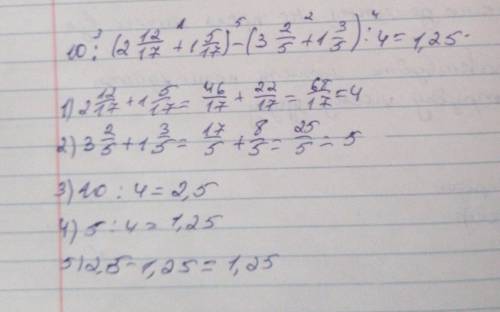 3 1 5 2 4
10 : (2 12/17 + 1 5/17) - (3 2/5 + 1 3/5) : 4 = 1,25
1) 2 12/17 + 1 5/17 = 46/17 + 22/17 = 68/17 = 4
2) 3 2/5 + 1 3/5 = 17/5 + 8/5 = 25/5 = 5
3) 10 : 4 = 2,5
4) 5 : 4 = 1,25
5) 2,5 - 1,25 = 1,25